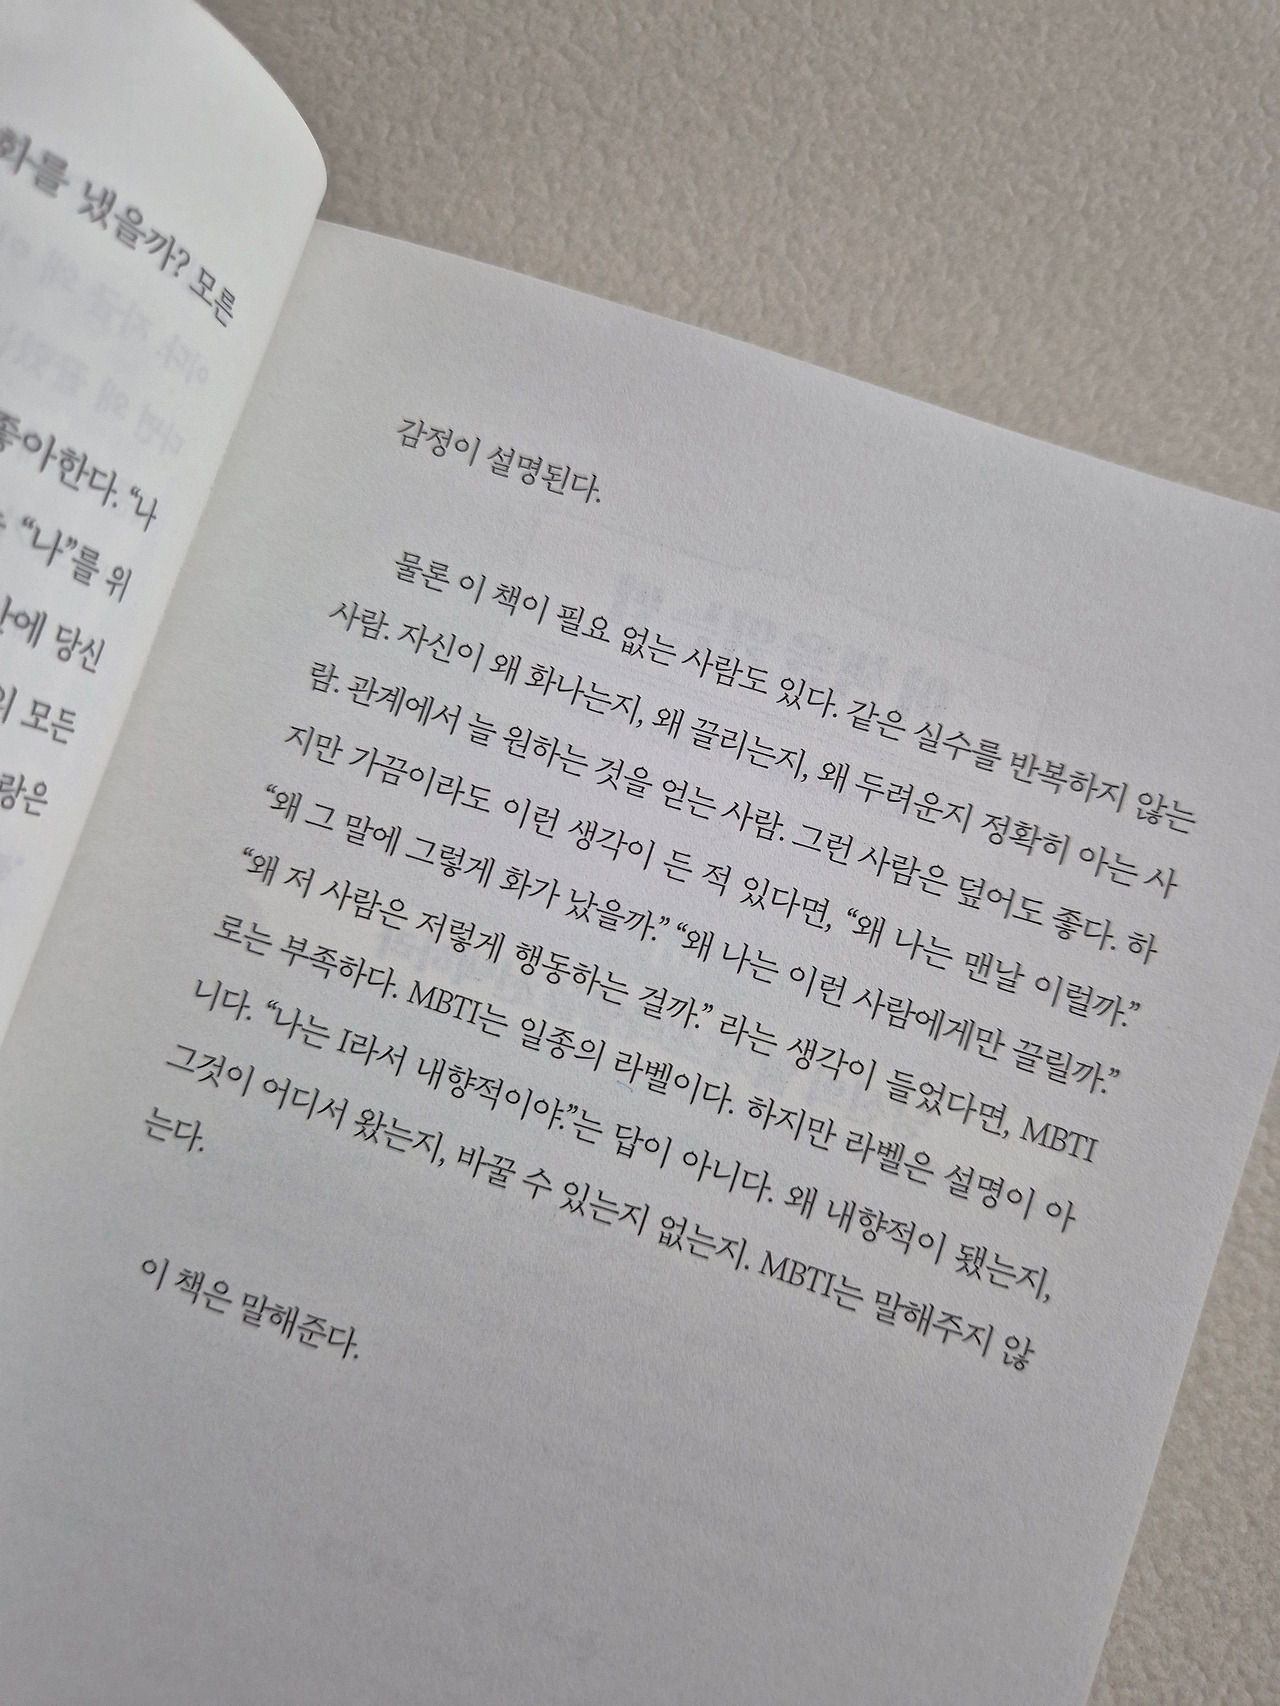 화를 냈을까? 모른
좋아한다. “나
“나”를 위
안에 당신
의 모든
랑은
감정이 설명된다.
물론 이 책이 필요 없는 사람도 있다. 같은 실수를 반복하지 않는
사람. 자신이 왜 화나는지, 왜 끌리는지, 왜 두려운지 정확히 아는 사
람. 관계에서 늘 원하는 것을 얻는 사람. 그런 사람은 덮어도 좋다. 하
지만 가끔이라도 이런 생각이 든 적 있다면, “왜 나는 맨날 이럴까.”
“왜 그 말에 그렇게 화가 났을까.” “왜 나는 이런 사람에게만 끌릴까.”
“왜 저 사람은 저렇게 행동하는 걸까.” 라는 생각이 들었다면, MBTI
로는 부족하다. MBTI는 일종의 라벨이다. 하지만 라벨은 설명이 아
니다. “나는 I라서 내향적이야.”는 답이 아니다. 왜 내향적이 됐는지,
그것이 어디서 왔는지, 바꿀 수 있는지 없는지. MBTI는 말해주지 않
는다.
이 책은 말해준다.